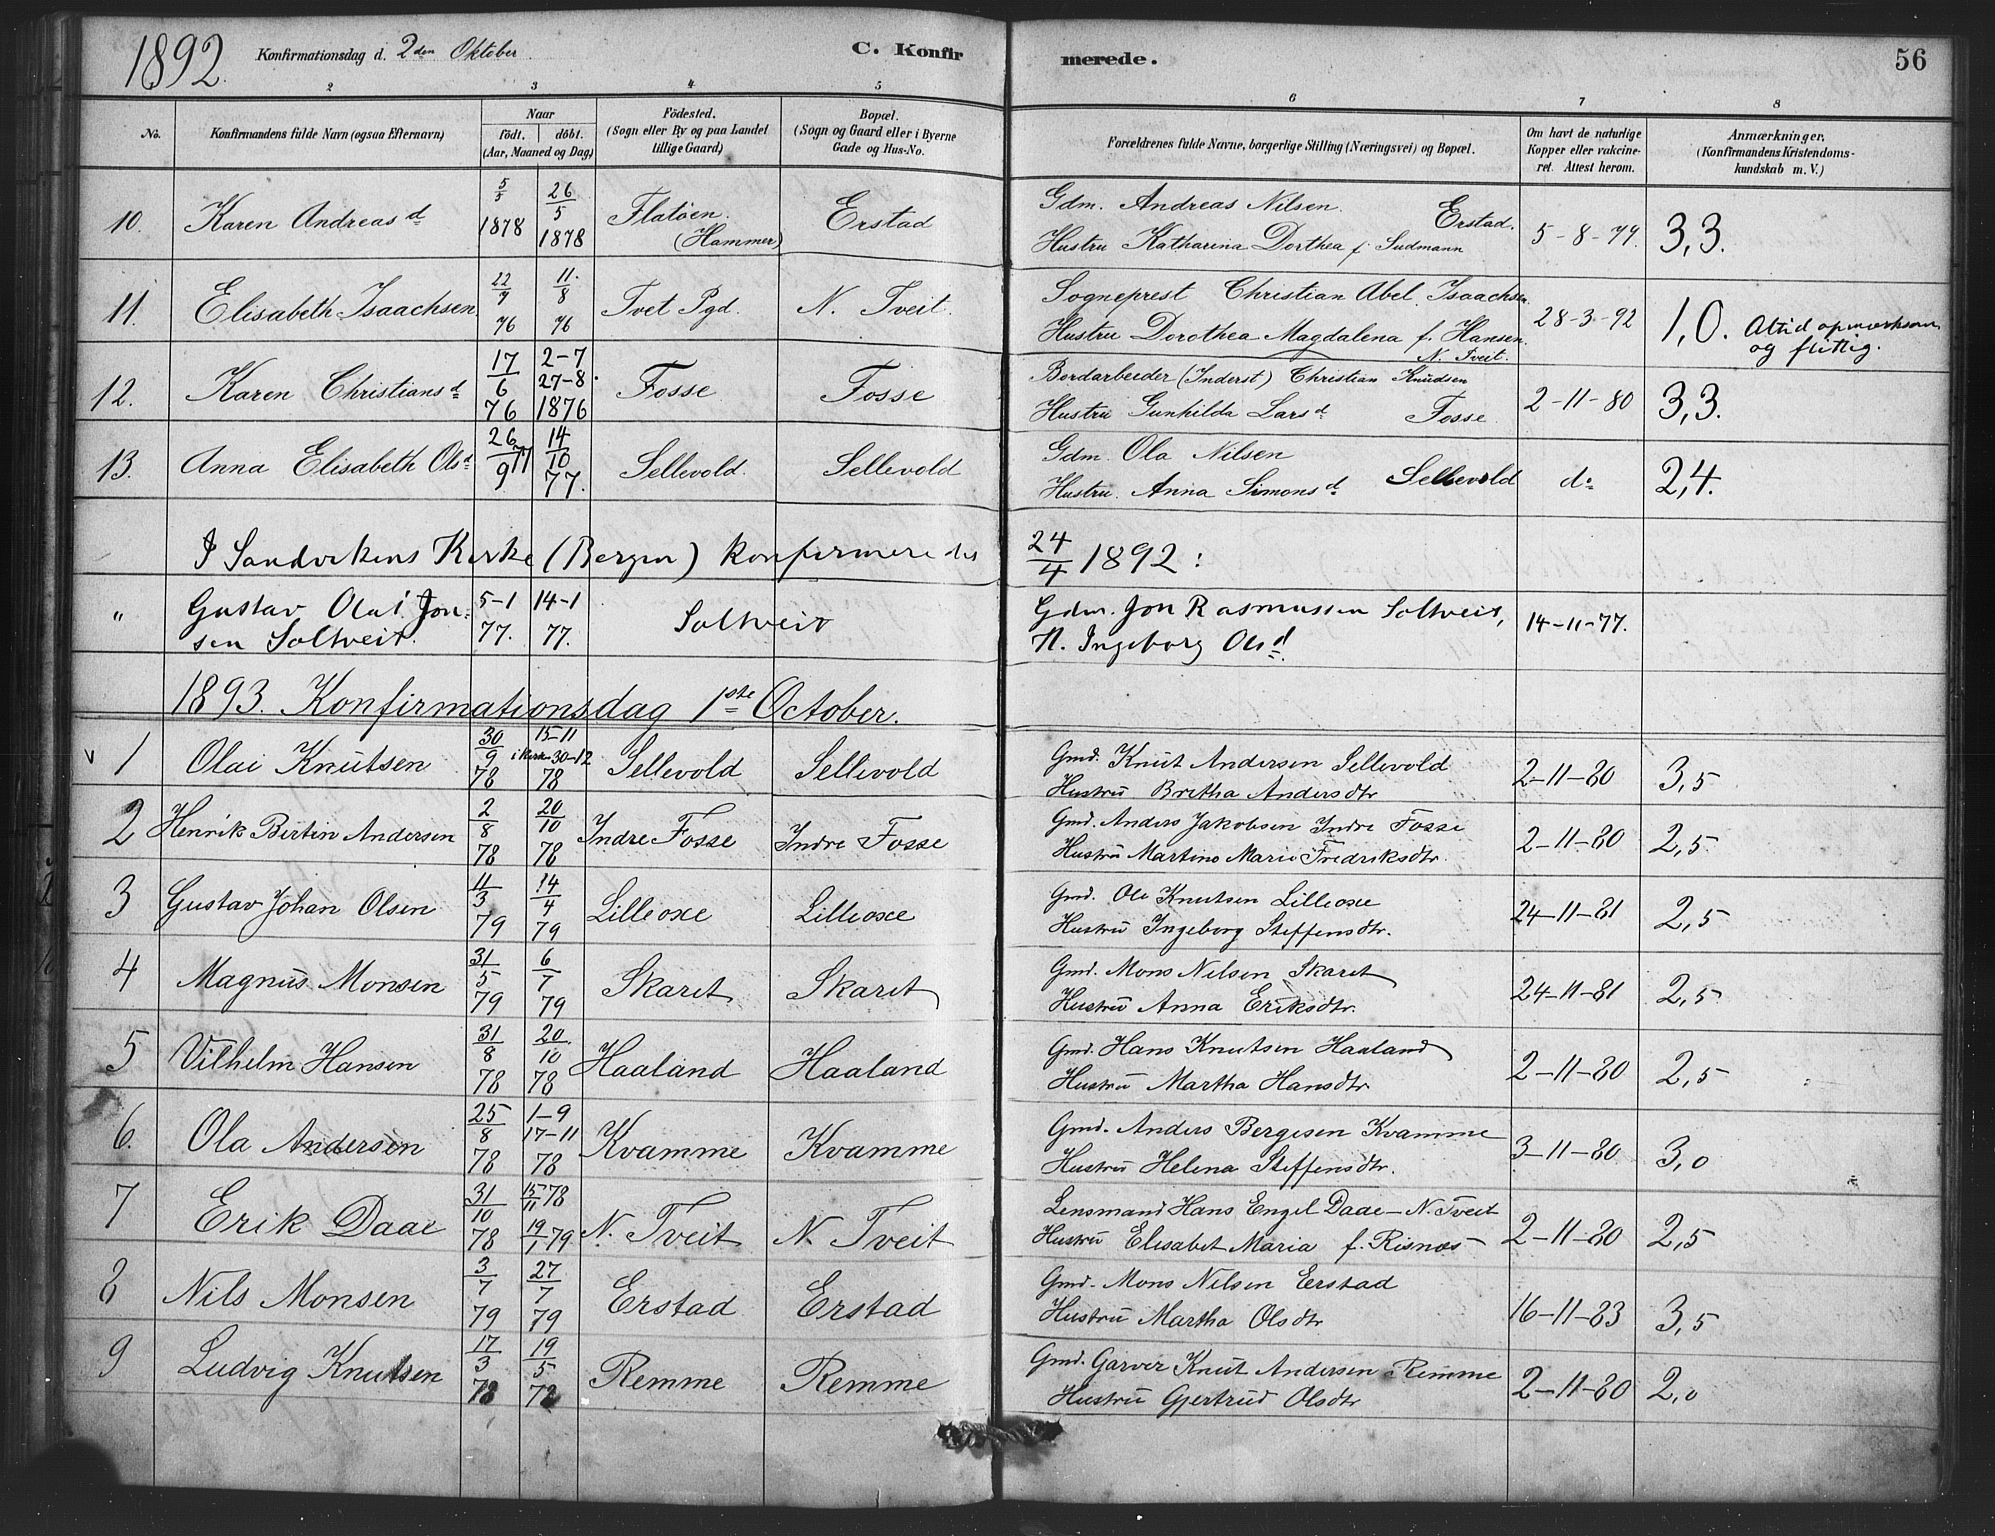 1892. Konfirmationsdag d. 2den Oktober. C. Konfirmerede. 56
2 3 4 5 6 7 8
No. Konfirmandens fulde Navn (ogsaa Efternavn)
Naar
födt. döbt.
(Aar, Maaned og Dag)
Födested.
(Sogn eller By og paa Landet
tillige Gaard)
Bopæl.
(Sogn og Gaard eller i Byerne
Gade og Hus-No.
Forældrenes fulde Navne, borgerlige Stilling (Næringsvei) og Bopæl.
Om havt de naturlige
Kopper eller vakcine-
ret. Attest herom.
Anmærkninger.
(Konfirmandens Kristendoms-
kundskab m. V.)
10. Karen Andreasd 5/5 1878 26/5 1878 Flatöen. (Hammer) Erstad
Gdm. Andreas Nilsen Erstad.
Hustru Katharina Dorthea f. Sudmann 5-8-79. 3,3.
11. Elisabeth Isaachsen 22/7 76 11/8 76 Tvet Pgd. N. Tveit.
Sogneprest Christian Abel Isaachsen
Hustru Dorothea Magdalena f. Hansen. N. Tveit. 28-3-92 1,0. Altid opmærksom
og flittig.
12. Karen Christiansd 17/6 76 2-7 27-8. 1876 Fosse Fosse
Bordarbeider (Inderst) Christian Knudsen
Hustru Gunhilda Larsd Fosse 2-11-80 3,3.
13. Anna Elisabeth Olsd 26/9 77 14/10 77. Sellevold. Sellevold
Gdm. Ola Nilsen
Hustru. Anna Simonsd Sellevold do 2,4.
I Sandvikens Kirke (Bergen) konfirmeredes 24/4 1892:
" Gustav Olai Jon-
sen Soltveit. 5-1 77. 14-1 77. Soltveit
Gdm. Jon Rasmussen Soltveit,
H. Ingeborg Olsd. 14-11-77.
1893. Konfirmationsdag 1ste October.
v 1 Olai Knutsen 30/9 78 15-11 i Kirken 30-12 78 Sellevold Sellevold
Gmd. Knut Andersen Sellevold
Hustru Britha Andersdtr 2-11-80 3,5
2 Henrik Bertin Andersen 2/8 78 20/10 78 Indre Fosse Indre Fosse
Gmd. Anders Jakobsen Indre Fosse
Hustru Martine Marie Fredriksdtr. 2-11-80 2,5
3 Gustav Johan Olsen 11/3 79 14/4 79 Lilleoxe Lilleoxe
Gmd. Ole Knutsen Lilleoxe
Hustru Ingeborg Steffensdtr. 24-11-81 2,5
4 Magnus Monsen 31/5 79 6/7 79 Skaret Skaret
Gmd. Mons Nilsen Skaret
Hustru Anna Eriksdtr. 24-11-81 2,5
5 Vilhelm Hansen 31/8 78 20/10 78 Haaland Haaland
Gmd. Hans Knutsen Haaland
Hustru Martha Hansdtr 2-11-80 2,5
6. Ola Andersen 25/8 78 1-9 17-11 78 Kvamme Kvamme
Gmd. Anders Bergesen Kvamme
Hustru Helena Steffensdtr. 3-11-80 3,0
7 Erik Daae 31/10 78 15/11 78 19/1 79 N. Tveit N. Tveit
Lensmand Hans Engel Daae - N. Tveit
Hustru Elisabet Maria f. Risnæs 2-11-80 2,5
8 Nils Monsen 3/7 79 27/7 79 Erstad Erstad
Gmd. Mons Nilsen Erstad
Hustru Martha Olsdtr 16-11-83 3,5
9 Ludvig Knutsen 17/3 78 19/5 78 Remme Remme
Gmd. Garver Knut Andersen Remme
Hustru Gjertrud Olsdtr 2-11-80 2,0